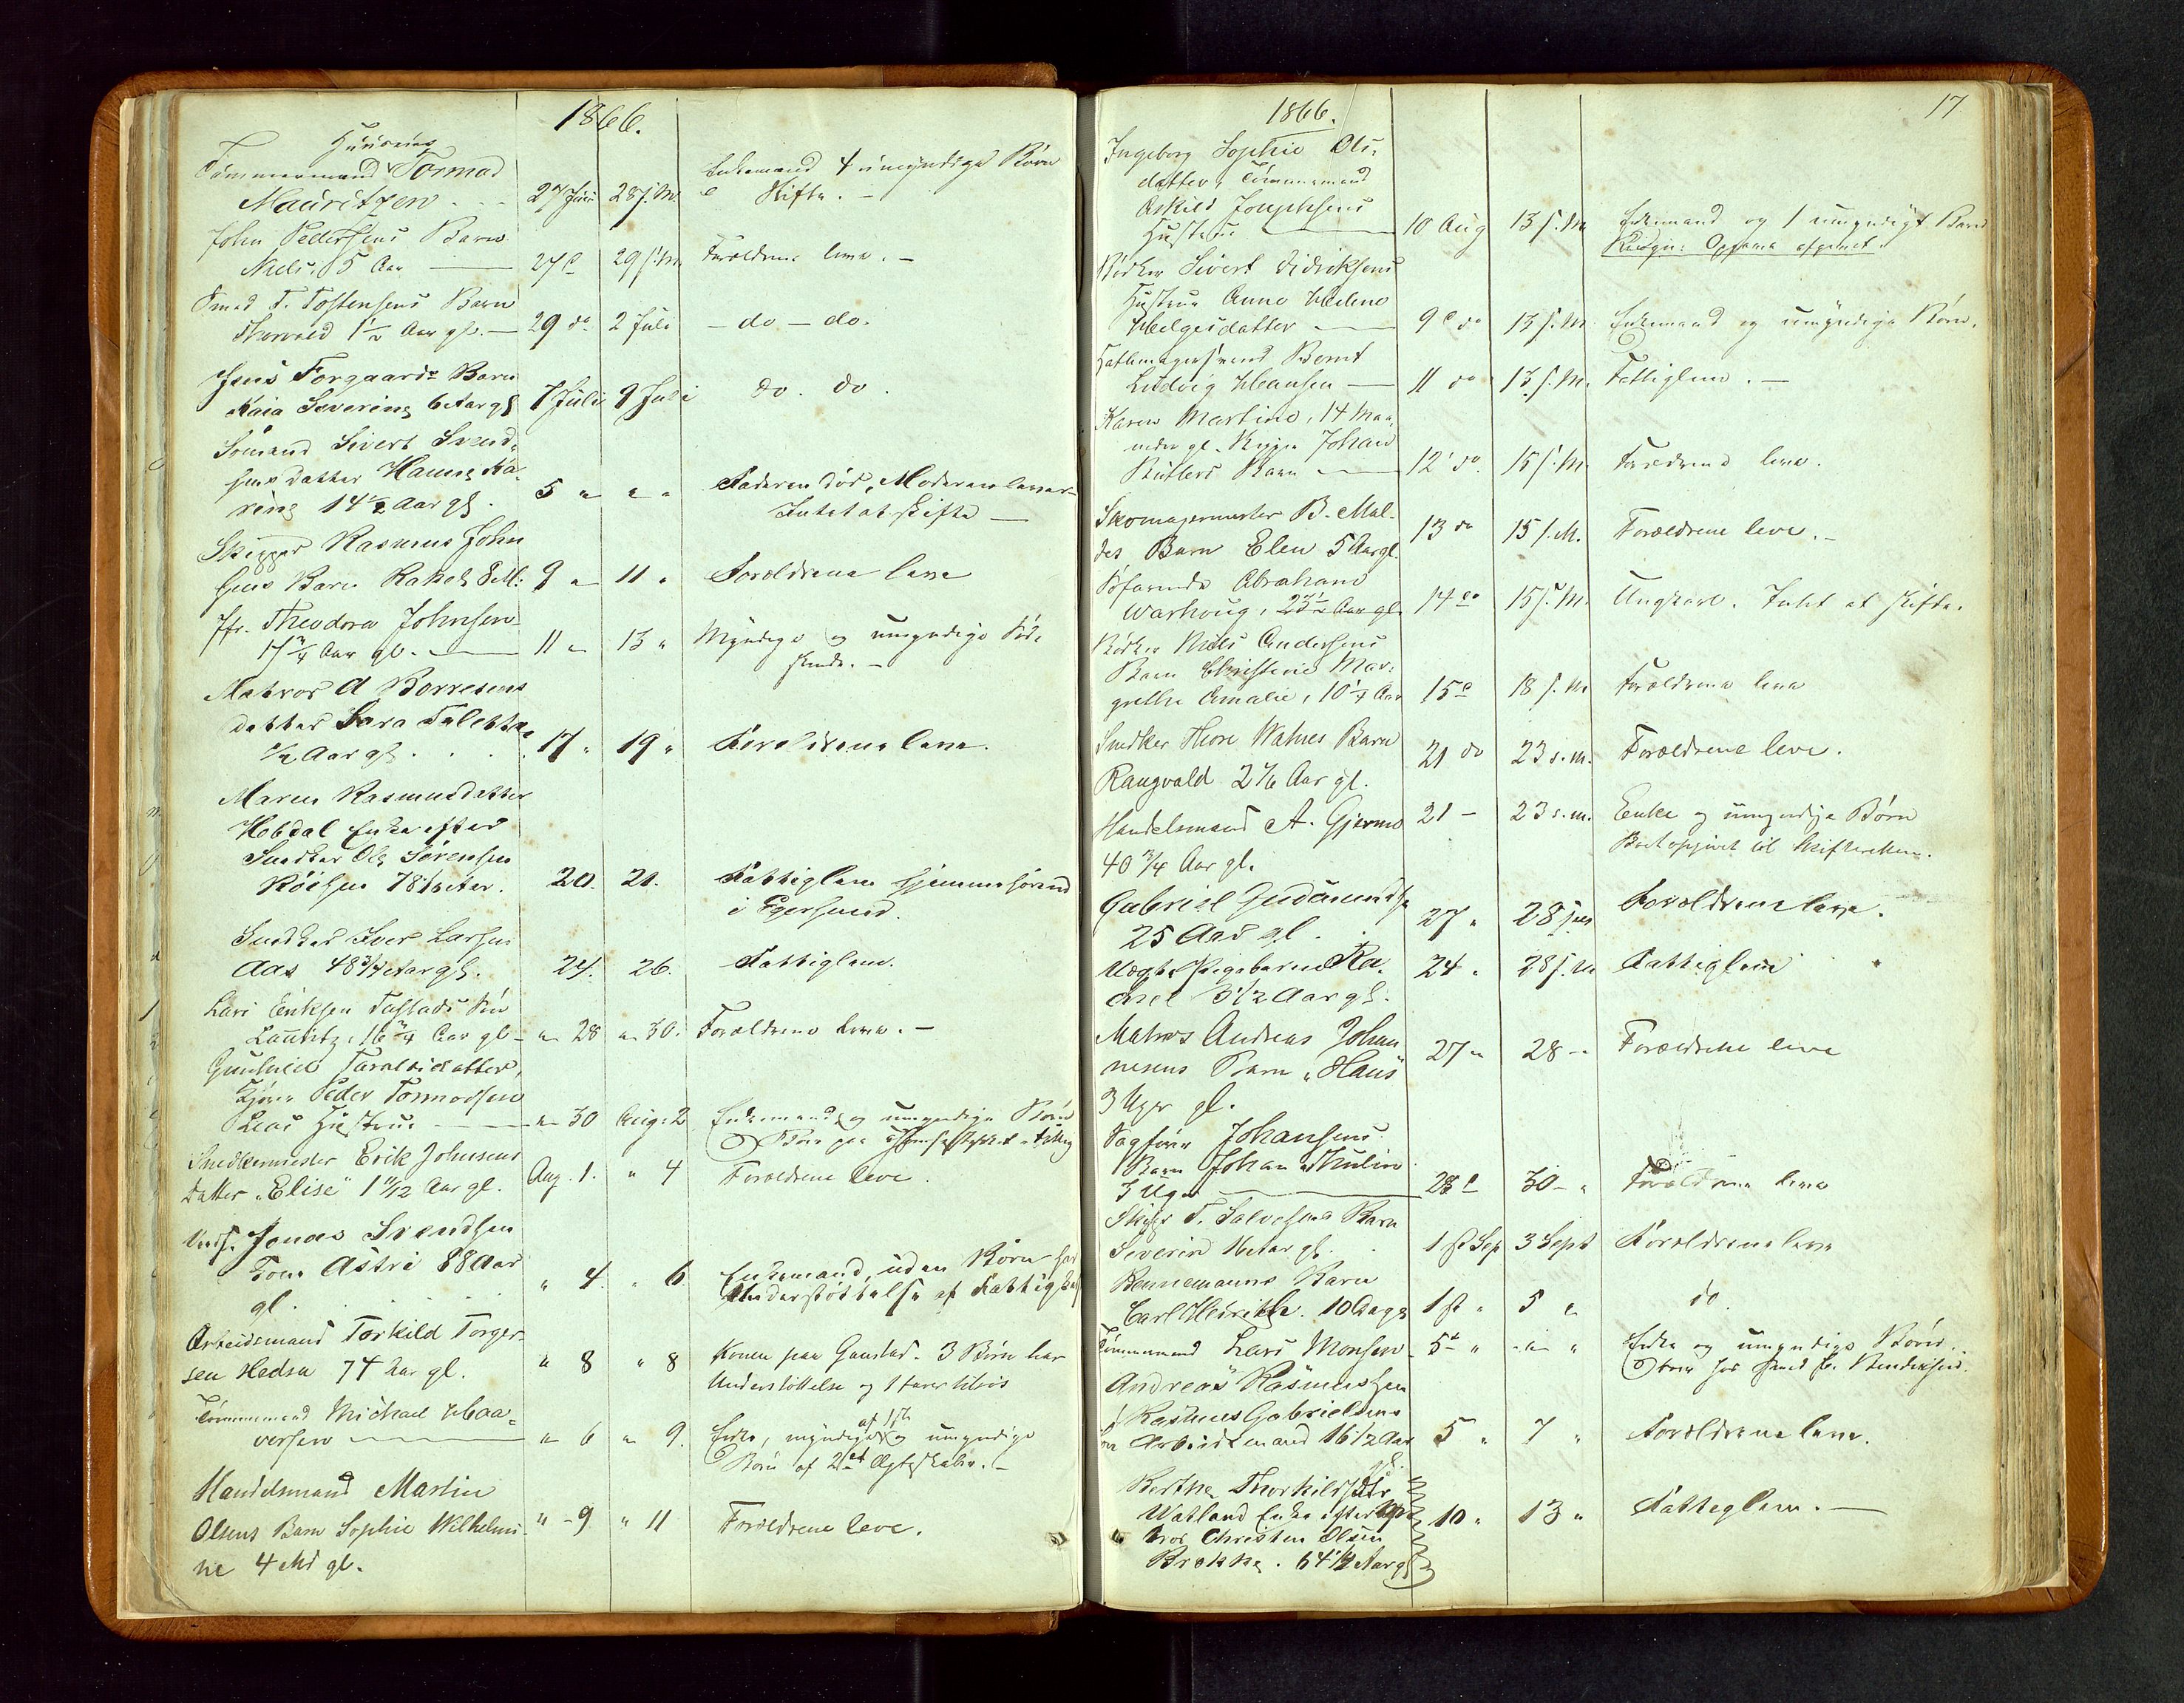 1866.
Huuseier
Tømmermand Tormod
Mauritzen 27 Juni 28 s. M. Enkemand 4 umyndige Børn
Skifte. -
John Pedersens Barn
Niels, 5 Aar 27 d 29 s. M. Forældrene leve. -
Smed T. Tostensens Barn
Thorvald 1 1/2 Aar gl. 29 do 2 Juli - do - do.
Jens Torgaards Barn
Kaia Severine 6 Aar gl 7 Juli 9 Juli do. do.
Sømand Sivert Svend-
sens datter Hanne Ka-
rine 14 1/2 Aar gl. 5 " " " Faderen død, Moderen lever
Intet at skifte
Skipper Rasmus John
sens Barn Rakel 8 M: 9 " 11 " Forældrene leve
Jfr. Theodora Johnsen
17 3/4 Aar gl. 11 " 13 " Myndige og umyndige Sød-
skende. -
Matros A Borresens
datter Sara Taletta
1/2 Aar gl. 17 " 19 " Forældrene leve.
Maren Rasmusdatter
Hobdal Enke efter
Snedker Ole Sørensen
78 Aar. 20. 21. Fattiglem hjemmehørende
i Egersund.
Snedker Iver Larsen
Aas 48 3/4 Aar gl. 24. 26. Fattiglem.
Lars Eriksen Tastads Søn
Lauritz, 16 3/4 Aar gl - " 28 " 30. Forældrene leve. -
Gunhild Taraldsdatter,
Peder Tormodsen
Hustrue " 30 Aug: 2 Enkemand og umyndige Børn
Snedkermester Erik Johnsens
Datter "Elise" 1 11/12 Aar gl. Aug. 1. " 4 Forældrene leve.
Jonas Svendsen
Kone Astri 88 Aar
gl. " 4. " 6 Enkemand, uden Børn har
Understøttelse af Fattigkas
Arbeidsmand Torkild Torger-
sen Hedsa 74 Aar gl. " 8 " 8 Konen paa Gausdal. 3 Børn har
Understøttelse og
Tømmermand Michael Haa-
versen " 6 " 9. Enke, myndige af 1ste og umyndige
Børn af 2det Ægteskab. -
Handelsmand Martin
Olsens Barn Sophie Wilhelmi- " - 9 " 11 Forældrene leve.
ne 4 Md gl.
1866. 17
Ingeborg Sophie Ols-
datter, Tømmermand
Askild Josephsens
Hustrue 10 Aug 13 s. M Enkemand og 1 umyndigt Barn
Bødker Sivert Didriksens
Hustrue Anne Helene
Helgesdatter 9 do 13 s. M Enkemand og umyndige Børn.
Hattemagersvend Bernt
Ludvig Hansen 11 do 13 s. M. Fattiglem. -
Karen Martine, 14 Maa-
neder gl. Skipper Johan
Barn 12 do. 15 s. M. Forældrene leve.
Skomagermester B. Mel-
des Barn Elen 5 Aar gl. 13 do 15 s. M. Forældrene leve. -
Søfarende Abraham
Warhoug, 23 1/2 Aar gl. 14 do 15 s. M. Ungkarl. Intet at skifte.
Bødker Niels Andersens
Barn Christine Mar-
grethe Amalie, 10 1/4 Aar 15 d 18 s. M Forældrene leve
Snedker Thore Watnes Barn
Rangvald 2 1/6 Aar gl. 21 do 23 s. M. Forældrene leve.
Handelsmand A. Gjermo 21 - 23 s. m. Enke og umyndige Børn
40 3/4 Aar gl. Boet opgivet til Skifteretten.
Gabriel Gudmunds
25 Aar gl. 27 " 28 s M Forældrene leve.
Pigebarn Ra-
chel 3 1/2 Aar gl. 24 " 28 s. M Fattiglem
Matros Andreas Johan
nesens Barn "Hans" 27 " 28 - Forældrene leve
3 Uger gl.
Sagfører Johansens
Barn Johan Thulin
3 Uger 28 d 30 - " Forældrene leve
Skipr T. Salvesens Barn
Severin 16 Aar gl. 1 st Sep 3 Sept Forældrene leve
Barn
Carl Hinrik 10 Dage 1 st " 5 " do.
Tømmermand Lars Monsen 5 " - " " Enke og umyndige Børn.
Andreas Rasmussen
Rasmus Gabrielsens
Arbeidsmand 16 1/2 Aar
gl. 5 " 7 " Forældrene leve.
Berthe Thorkildsdtr
Watland Enke efter Ma-
tros Christen Olsen 10 " 13 " Fattiglem. -
Brekke. 64 1/2 Aar gl